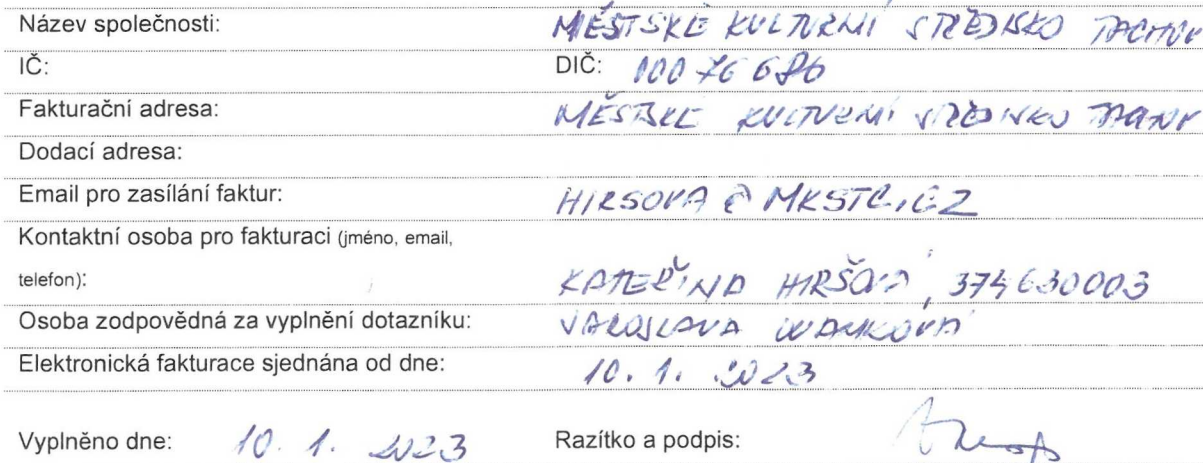 Název společnosti: MĚSTSKÉ KULTURNÍ STŘEDISKO TACHOV
IČ: DIČ: 00076686
Fakturační adresa: MĚSTSKÉ KULTURNÍ STŘEDISKO TACHOV
Dodací adresa:
Email pro zasílání faktur: HIRSOVA@MKSTC.CZ
Kontaktní osoba pro fakturaci (jméno, email,
telefon): KATEŘINA HIRŠOVÁ, 374630003
Osoba zodpovědná za vyplnění dotazníku: JAROSLAVA
Elektronická fakturace sjednána od dne: 10. 1. 2023
Vyplněno dne: 10. 1. 2023 Razítko a podpis: